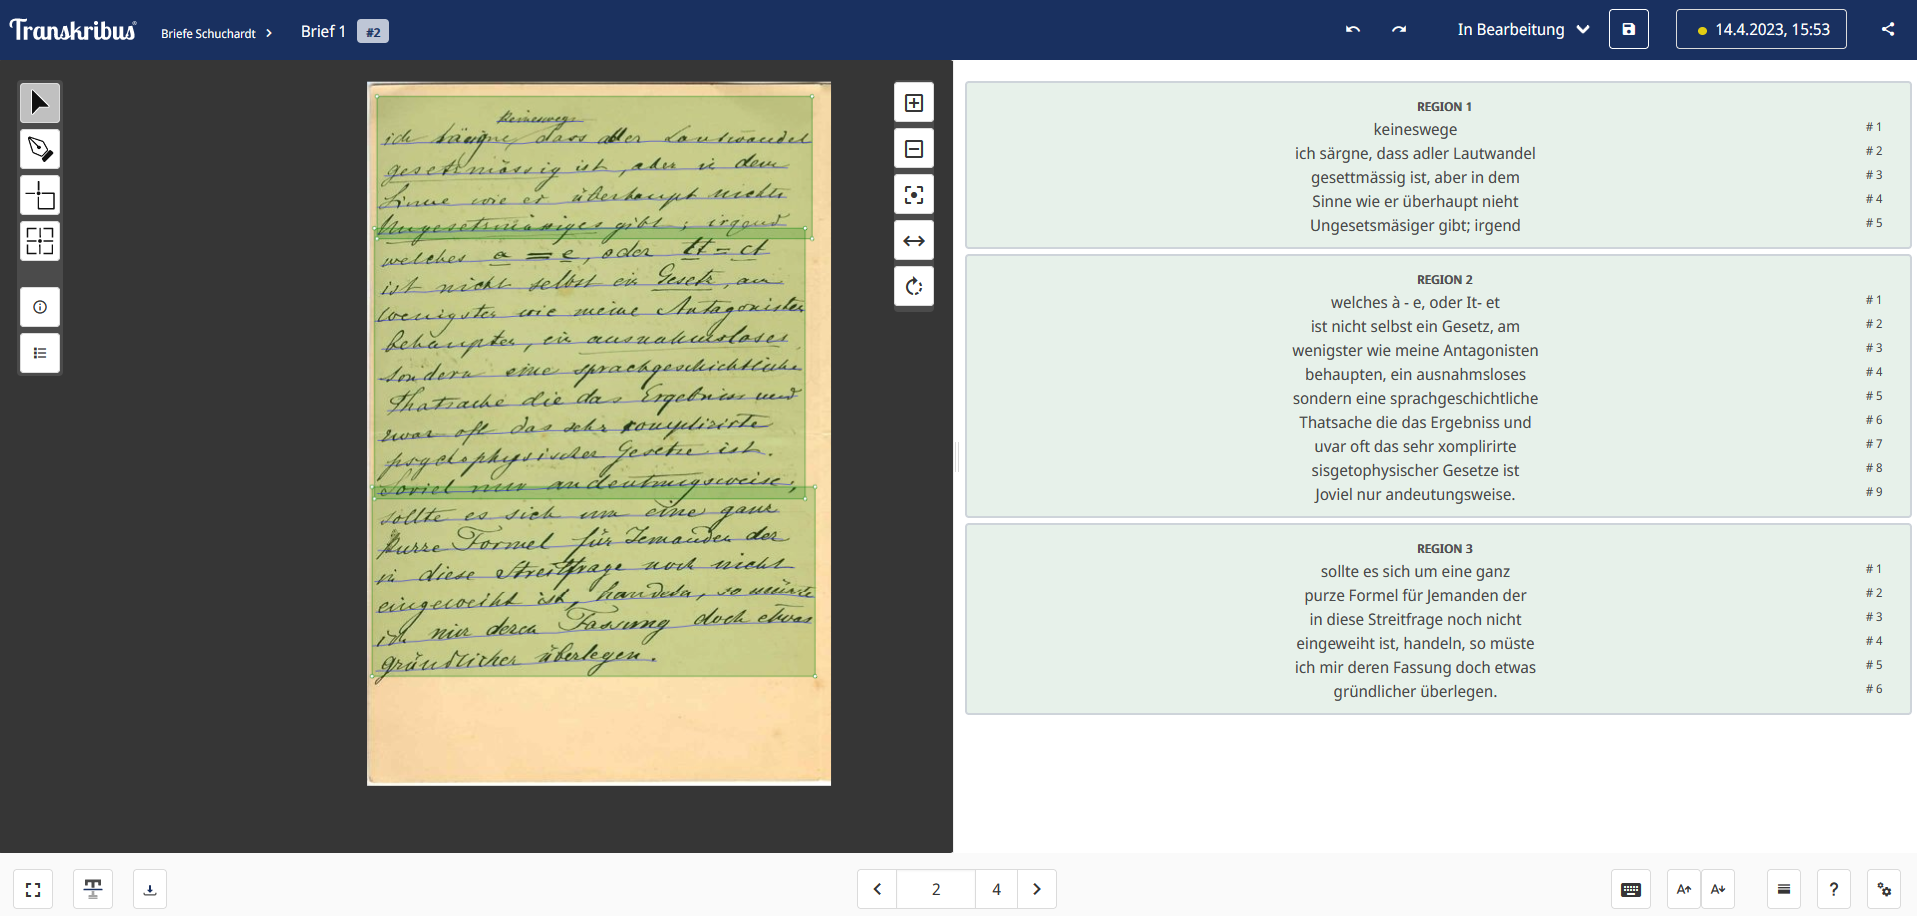 Transkribus
Briefe Schuchardt
Brief 1 #2
In Bearbeitung
14.4.2023, 15:53
keineswegs
ich läugne, dass aller Lautwandel
gesetzmässig ist, aber in dem
Sinne wie er überhaupt nichts
Ungesetzmässiges gibt; irgend
welches a = e, oder tt = ct
ist nicht selbst ein Gesetz, am
wenigsten wie meine Antagonisten
behaupten, ein ausnahmsloses
sondern eine sprachgeschichtliche
Thatsache die das Ergebniss und
zwar oft das sehr complizirte
psychophysischer Gesetze ist.
Soviel nur andeutungsweise,
sollte es sich um eine ganz
kurze Formel für Jemanden der
in diese Streitfrage noch nicht
eingeweiht ist, handeln, so müsste
ich mir deren Fassung doch etwas
gründlicher überlegen.
REGION 1
keineswege #1
ich särgne, dass adler Lautwandel #2
gesettmässig ist, aber in dem #3
Sinne wie er überhaupt nieht #4
Ungesetsmäsiger gibt; irgend #5
REGION 2
welches à - e, oder It- et #1
ist nicht selbst ein Gesetz, am #2
wenigster wie meine Antagonisten #3
behaupten, ein ausnahmsloses #4
sondern eine sprachgeschichtliche #5
Thatsache die das Ergebniss und #6
uvar oft das sehr xomplirirte #7
sisgetophysischer Gesetze ist #8
Joviel nur andeutungsweise. #9
REGION 3
sollte es sich um eine ganz #1
purze Formel für Jemanden der #2
in diese Streitfrage noch nicht #3
eingeweiht ist, handeln, so müste #4
ich mir deren Fassung doch etwas #5
gründlicher überlegen. #6
2 4
A A ?